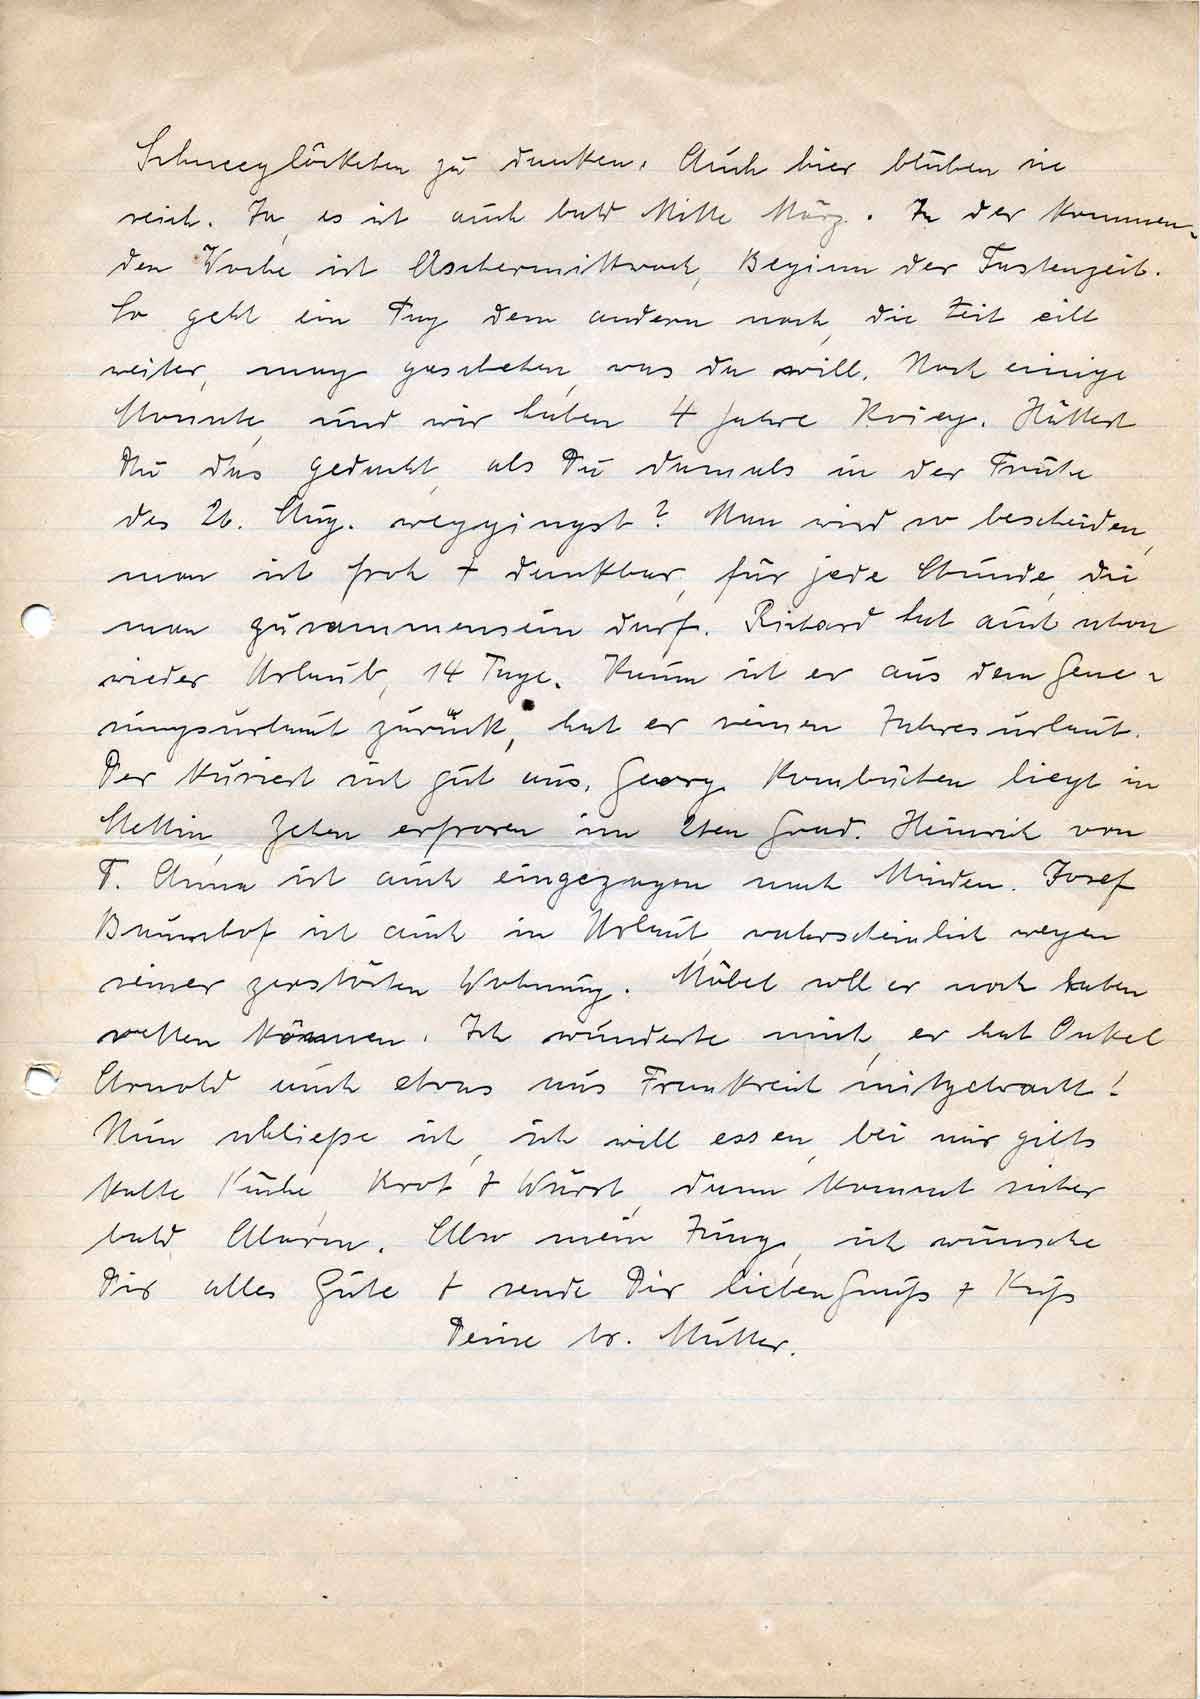 Schneeglöckchen zu danken. Auch hier blühen sie
reich. Ja, es ist auch bald Mitte März. In der kommen-
den Woche ist Aschermittwoch, Beginn der Fastenzeit.
So geht ein Tag dem andern nach, die Zeit eilt
weiter, mag geschehen, was da will. Noch einige
Monate, und wir haben 4 Jahre Krieg. Hättest
Du das gedacht, als Du damals in der Frühe
des 26. Aug. weggingst? Man wird so bescheiden,
man ist froh + dankbar, für jede Stunde, die
man zusammensein darf. Richard hat auch schon
wieder Urlaub, 14 Tage. Kaum ist er aus dem Gene-
sungsurlaub zurück, hat er seinen Jahresurlaub.
Der kuriert sich gut aus. Georg Kornbüchen liegt in
Stettin, Zehen erfroren im 2ten Grad. Heinrich von
T. Anna ist auch eingezogen nach Minden. Josef
Baumhof ist auch in Urlaub, wahrscheinlich wegen
seiner zerstörten Wohnung. Möbel soll er noch haben
retten können. Ich wunderte mich, er hat Onkel
Arnold auch etwas aus Frankreich mitgebracht!
Nun schließe ich, ich will essen, bei mir gibts
kalte Küche, Brot + Wurst, dann kommt sicher
bald Alarm. Also mein Jung, ich wünsche
Dir alles Gute + sende Dir lieben Gruß + Kuß
Deine tr. Mutter.